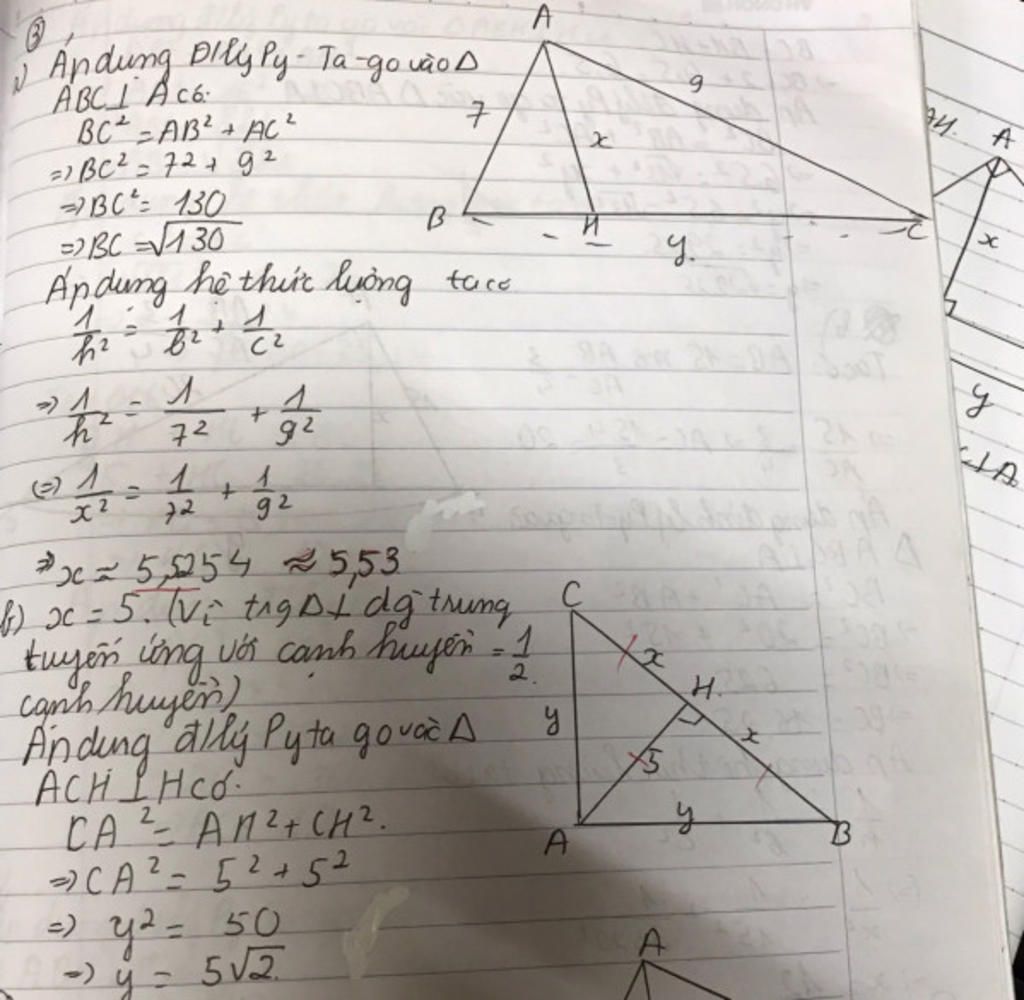 ③
a) Áp dụng Đ/lý Py-Ta-go vào Δ
ABC ⊥ A có:
BC² = AB² + AC²
=> BC² = 7² + 9²
=> BC² = 130
=> BC = √130
Áp dụng hệ thức lượng ta có
1/h² = 1/b² + 1/c²
=> 1/h² = 1/7² + 1/9²
(=) 1/x² = 1/7² + 1/9²
=> x ≈ 5,5254 ≈ 5,53
b) x = 5. (Vì trg Δ⊥ dg trung
tuyến ứng với cạnh huyền = 1/2.
cạnh huyền)
Áp dụng đ/lý Pyta go vào Δ
ACH ⊥ H có:
CA² = AH² + CH².
=> CA² = 5² + 5²
=> y² = 50
=> y = 5√2.
A
7
9
x
B
H
y.
C
C
x
H.
y
x
5
A
y
B
A
A
x
y